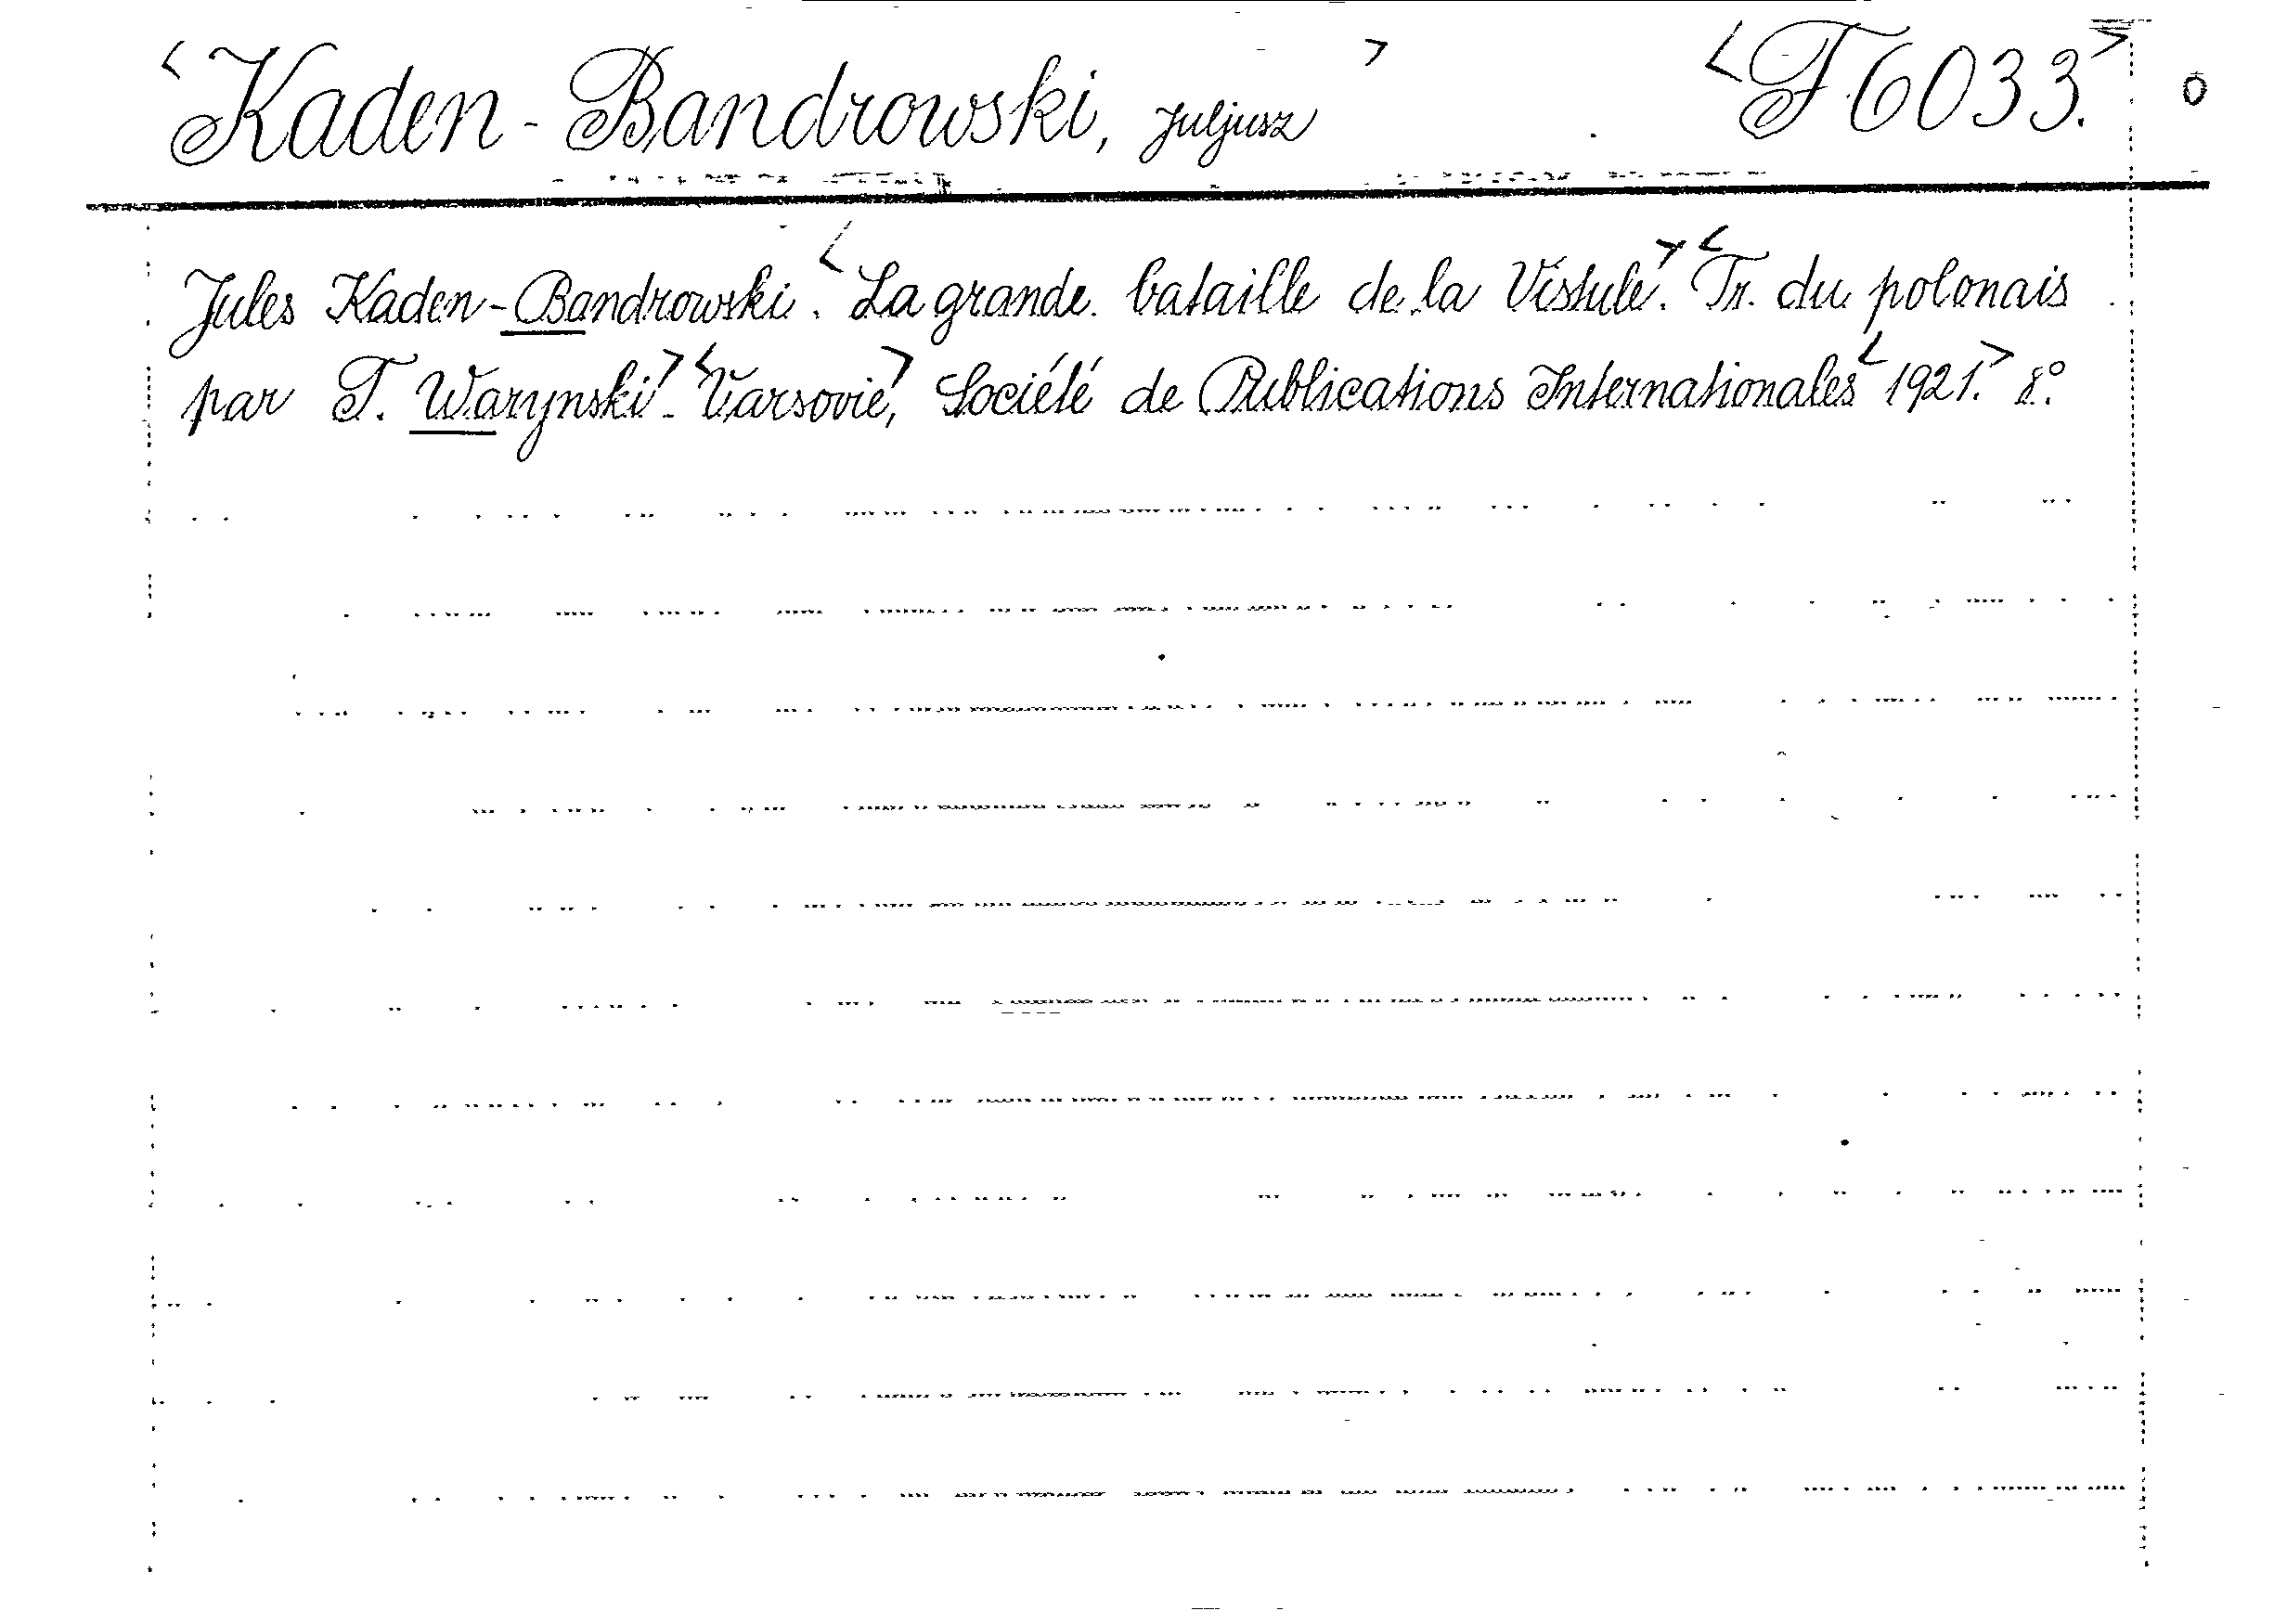 <Kaden-Bandrowski, Juljusz> <F 6033.> 0
Jules Kaden-Bandrowski. <La grande bataille de la Vistule.> <Tr. du polonais
par T. Warynski.> - <Varsovie>, Société de Publications Internationales <1921.> 8º.